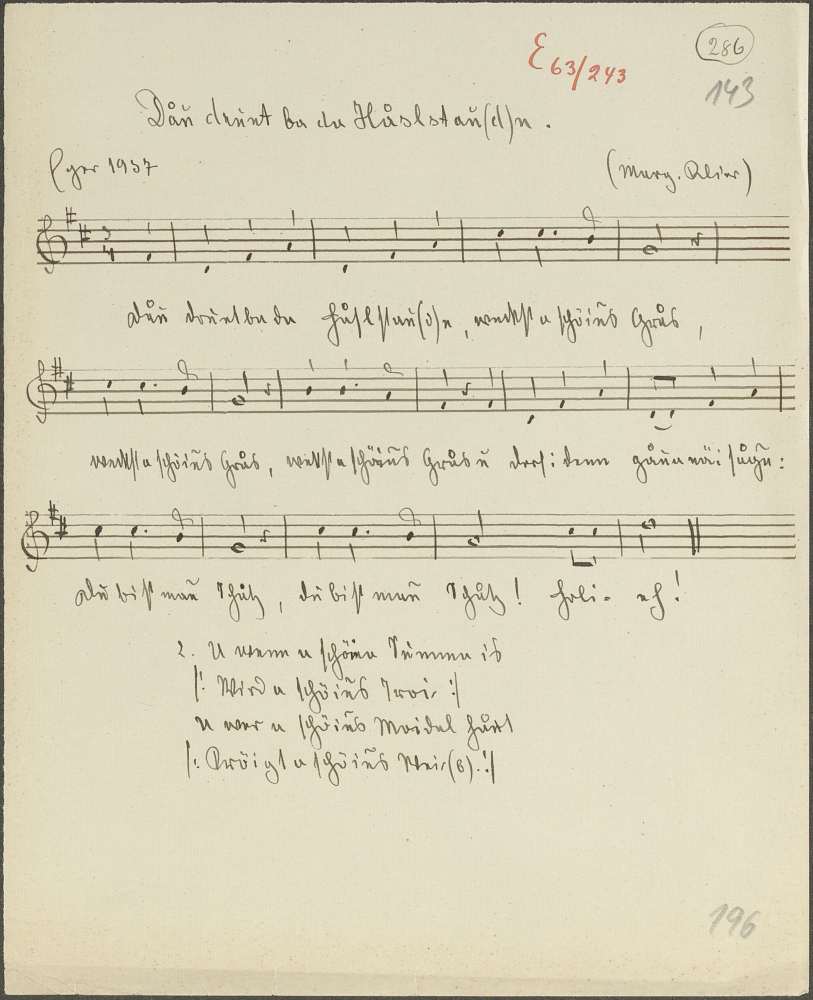 E 63/243
286
143
Dåu drunt ba da Håslstau(d)n.
Eger 1937
(Marg. Klier)
3
4
Dåu drunt ba da Håslstau(d)n, wachst a schöins Grås,
wachst a schöins Grås, wachst a schöins Grås u derf i denn gåua näi sågn:
du bist mau Schåtz, du bist mau Schåtz! holi- eh!
2. U wenn a schöina Summa is
/: Wird a schöins Troi- :/
u wer a schöins Moidel håut
/: Kröigt a schöins Wei-(b). :/
196